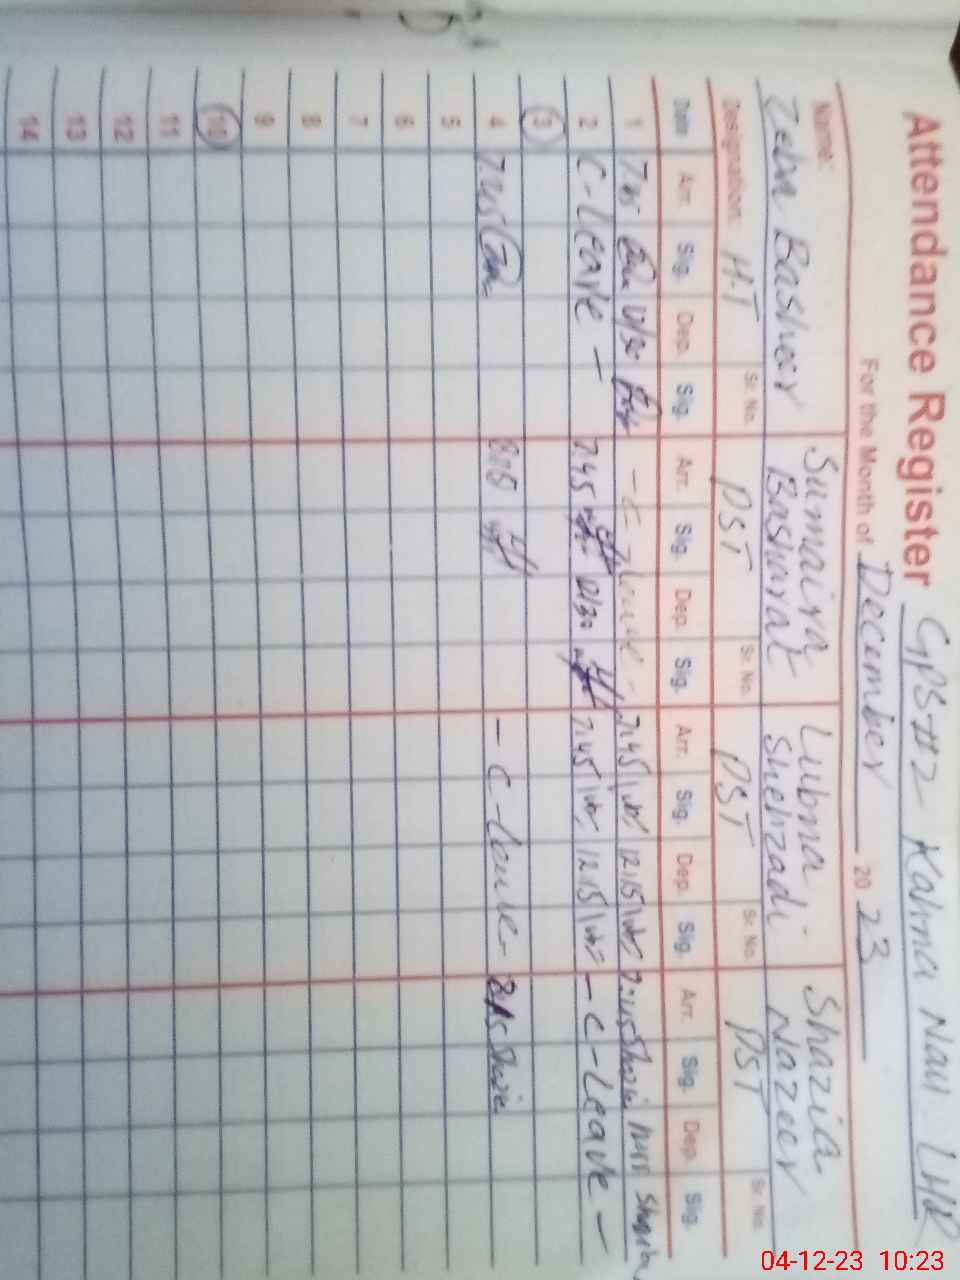 Attendance Register GPS#2 Kahna Nau LHR
For the Month of December 2023
Name: Zeba Basheer Sumaira Basharat Lubna Shehzadi Shazia Nazeer
Designation: H.T Sr. No. PST Sr. No. PST Sr. No. PST Sr. No.
Date Arr. Sig. Dep. Sig. Arr. Sig. Dep. Sig. Arr. Sig. Dep. Sig. Arr. Sig. Dep. Sig.
1 7.45 12/30 - C-leave - 7.45 12.15 7:45 Shazia Shazia
2 C-Leave - 7.45 12/30 7.45 12.15 - C-Leave -
3
4 7.45 8:15 - C-leave - 8.15 Shazia
5
6
7
8
9
10
11
12
13
14
04-12-23 10:23